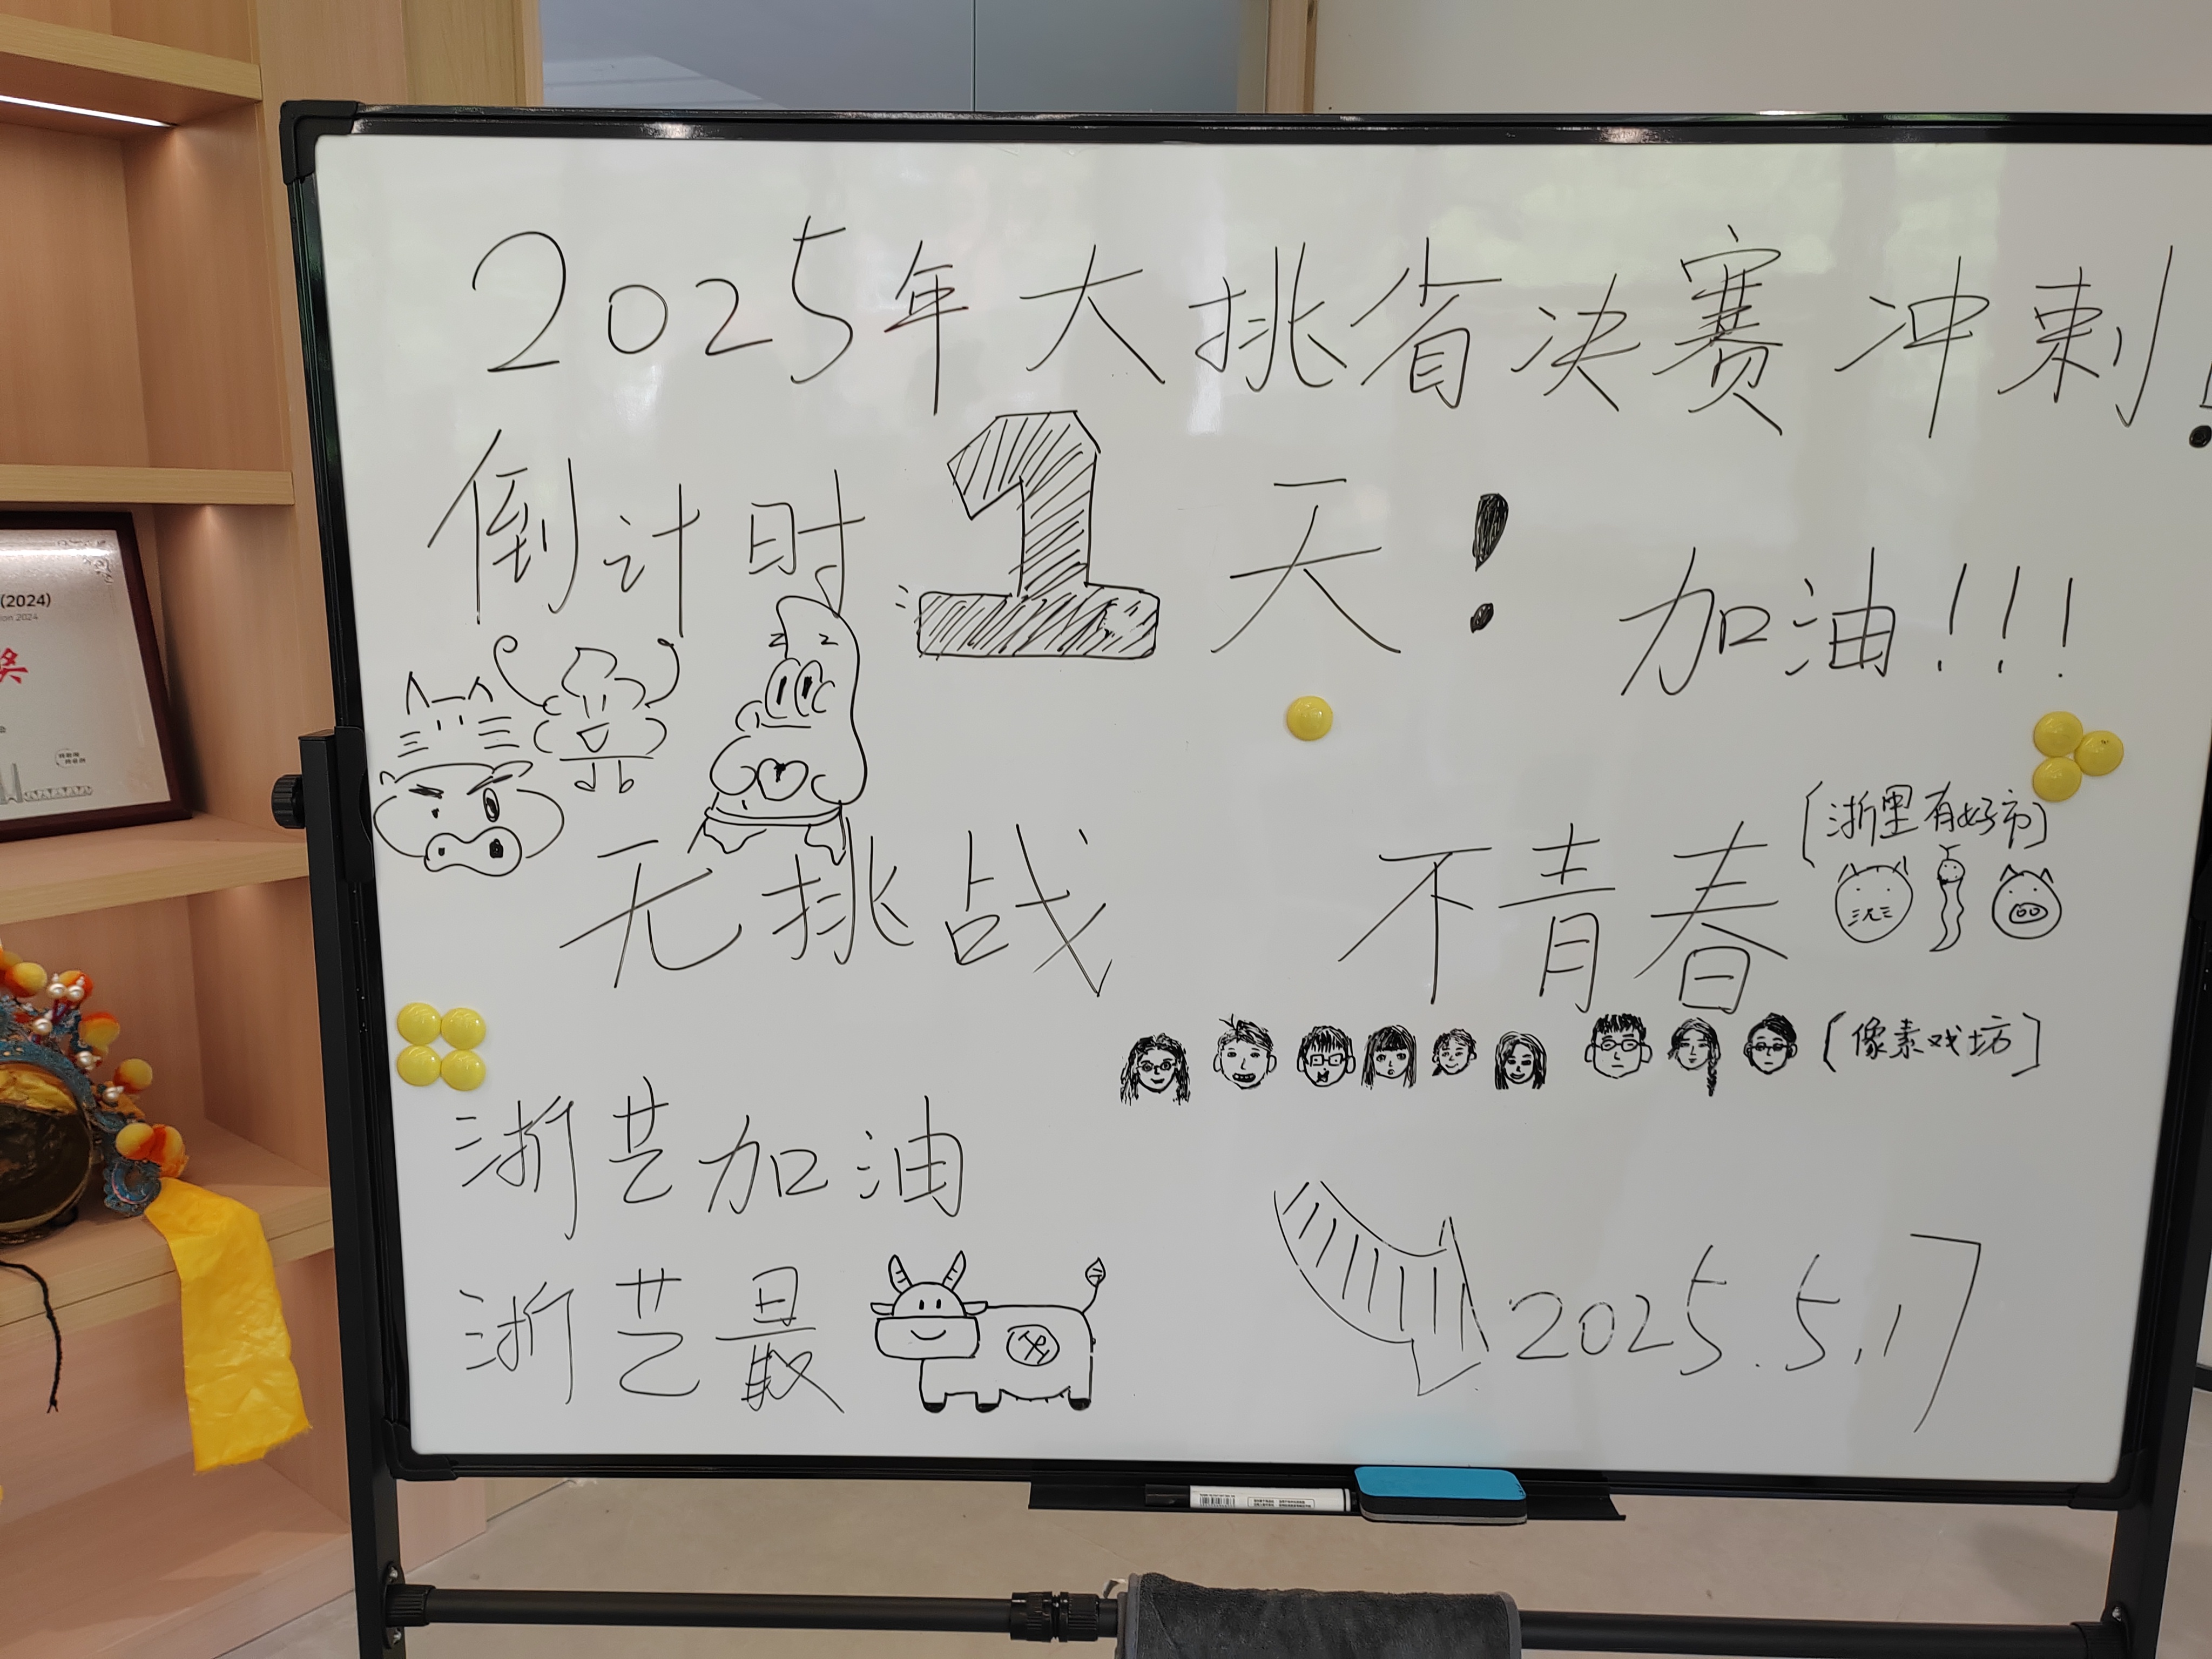 2025年大挑省决赛冲刺!
倒计时1天!
加油!!!
无挑战 不青春
(浙里有好市)
(像素戏坊)
浙艺加油
浙艺最
2025.5.17
(2024)
ion 2024
奖